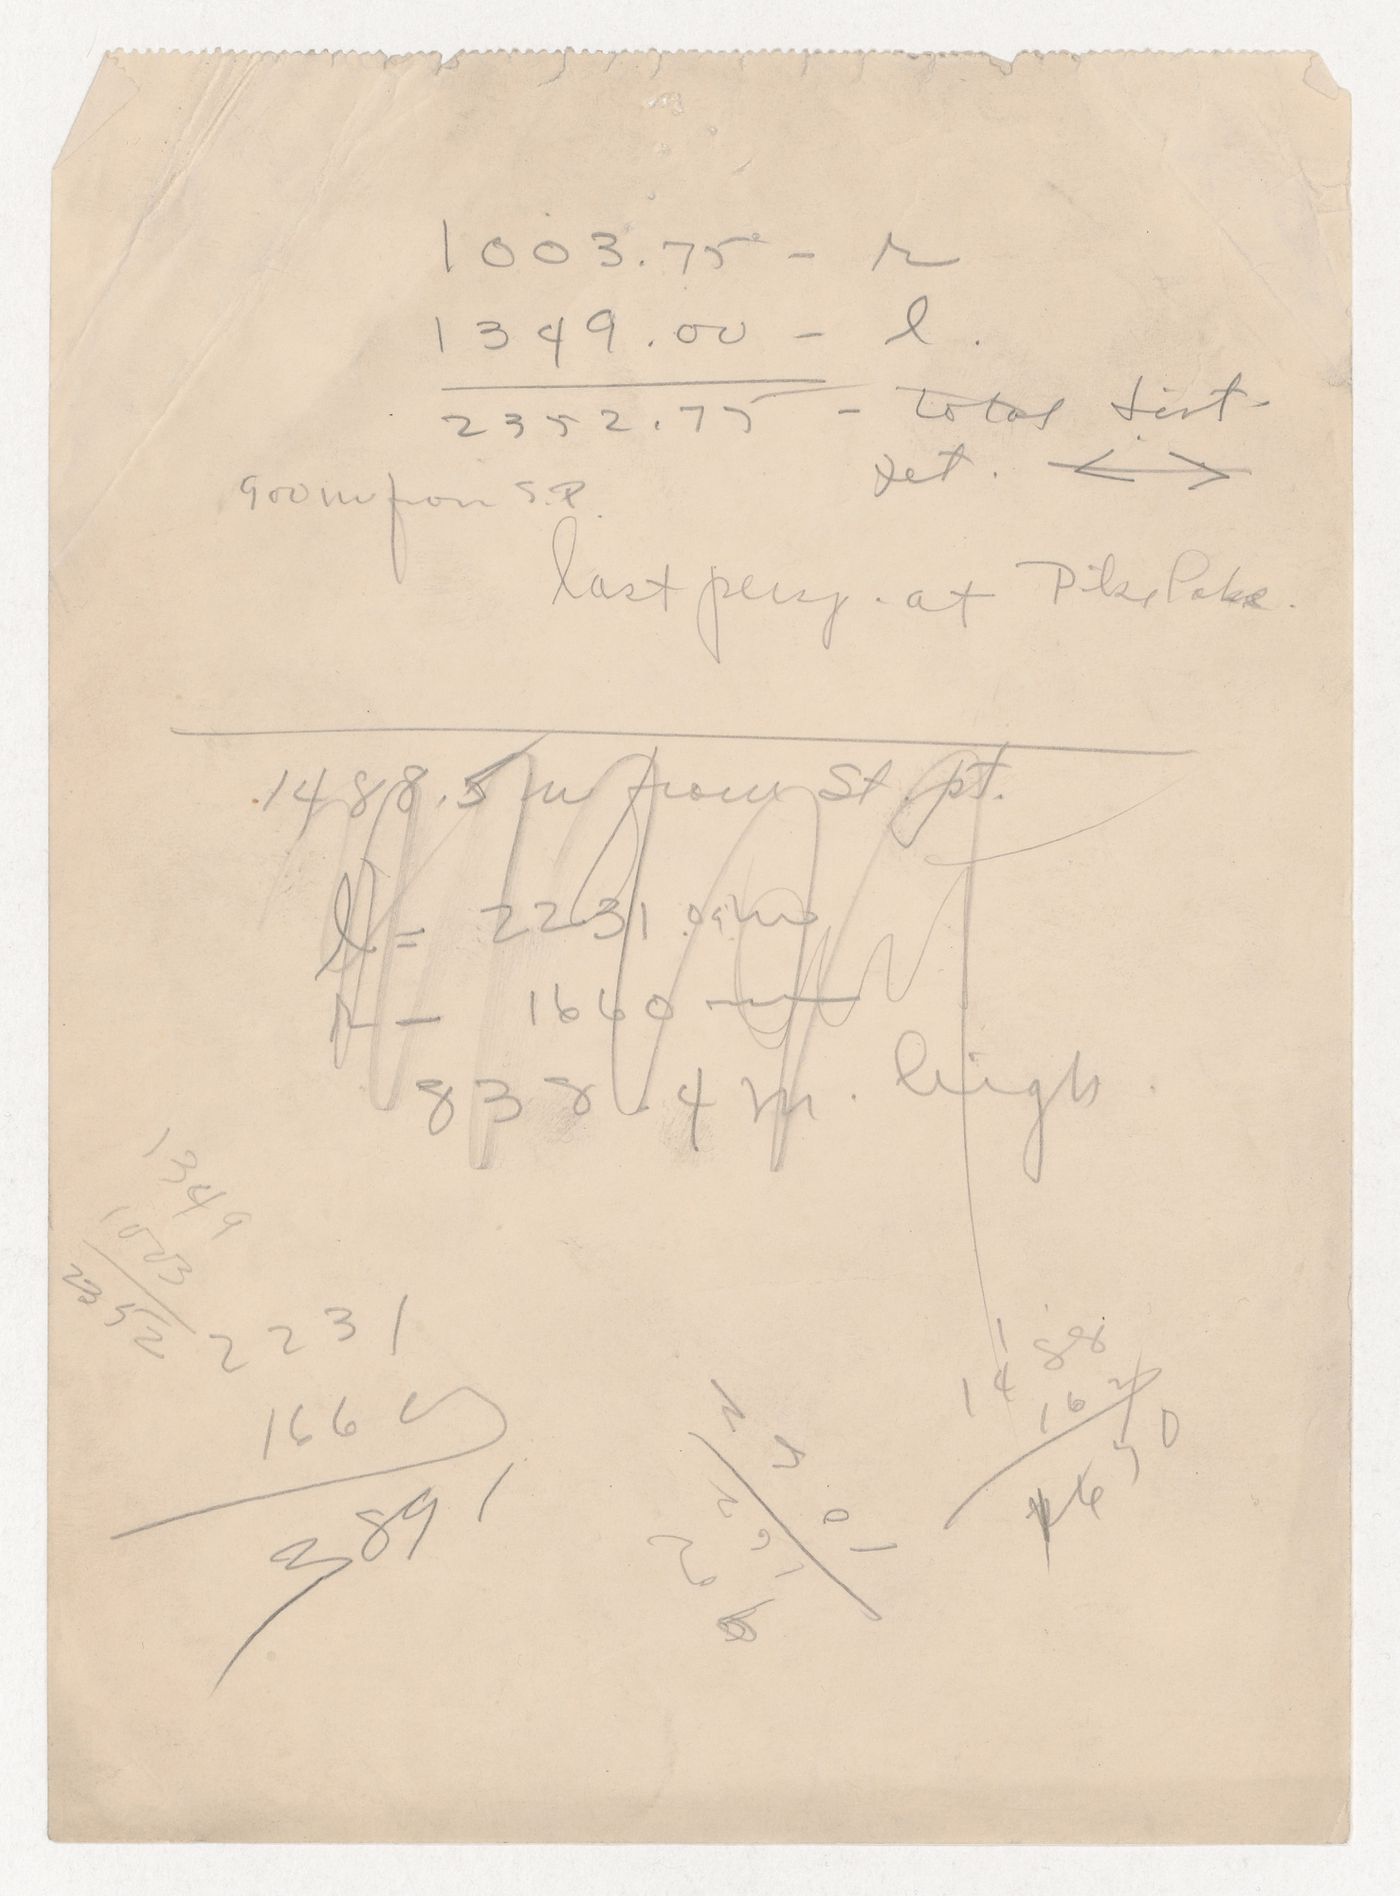 1003.75 - r
1349.00 - l.
2352.75 - total dist-
bet. ↔
900 m from S.P.
last persp. at Pike Lake.
1488.5 m from St. pt.
l = 2231.09 m
r - 1660 m
838.4 m. high.
1349
1003
2352
2231
1660
3891
1488
14 162